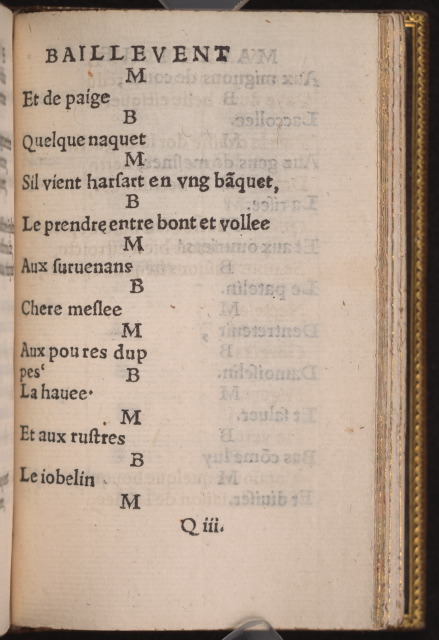 BAILLEVENT
M
Et de paige
B
Quelque naquet
M
Sil vient harſart en vng bãquet,
B
Le prendre entre bont et vollee
M
Aux ſuruenans
B
Chere meſlee
M
Aux poures dup
pes
B
La hauee.
M
Et aux ruſtres
B
Le iobelin
M
Q iii.